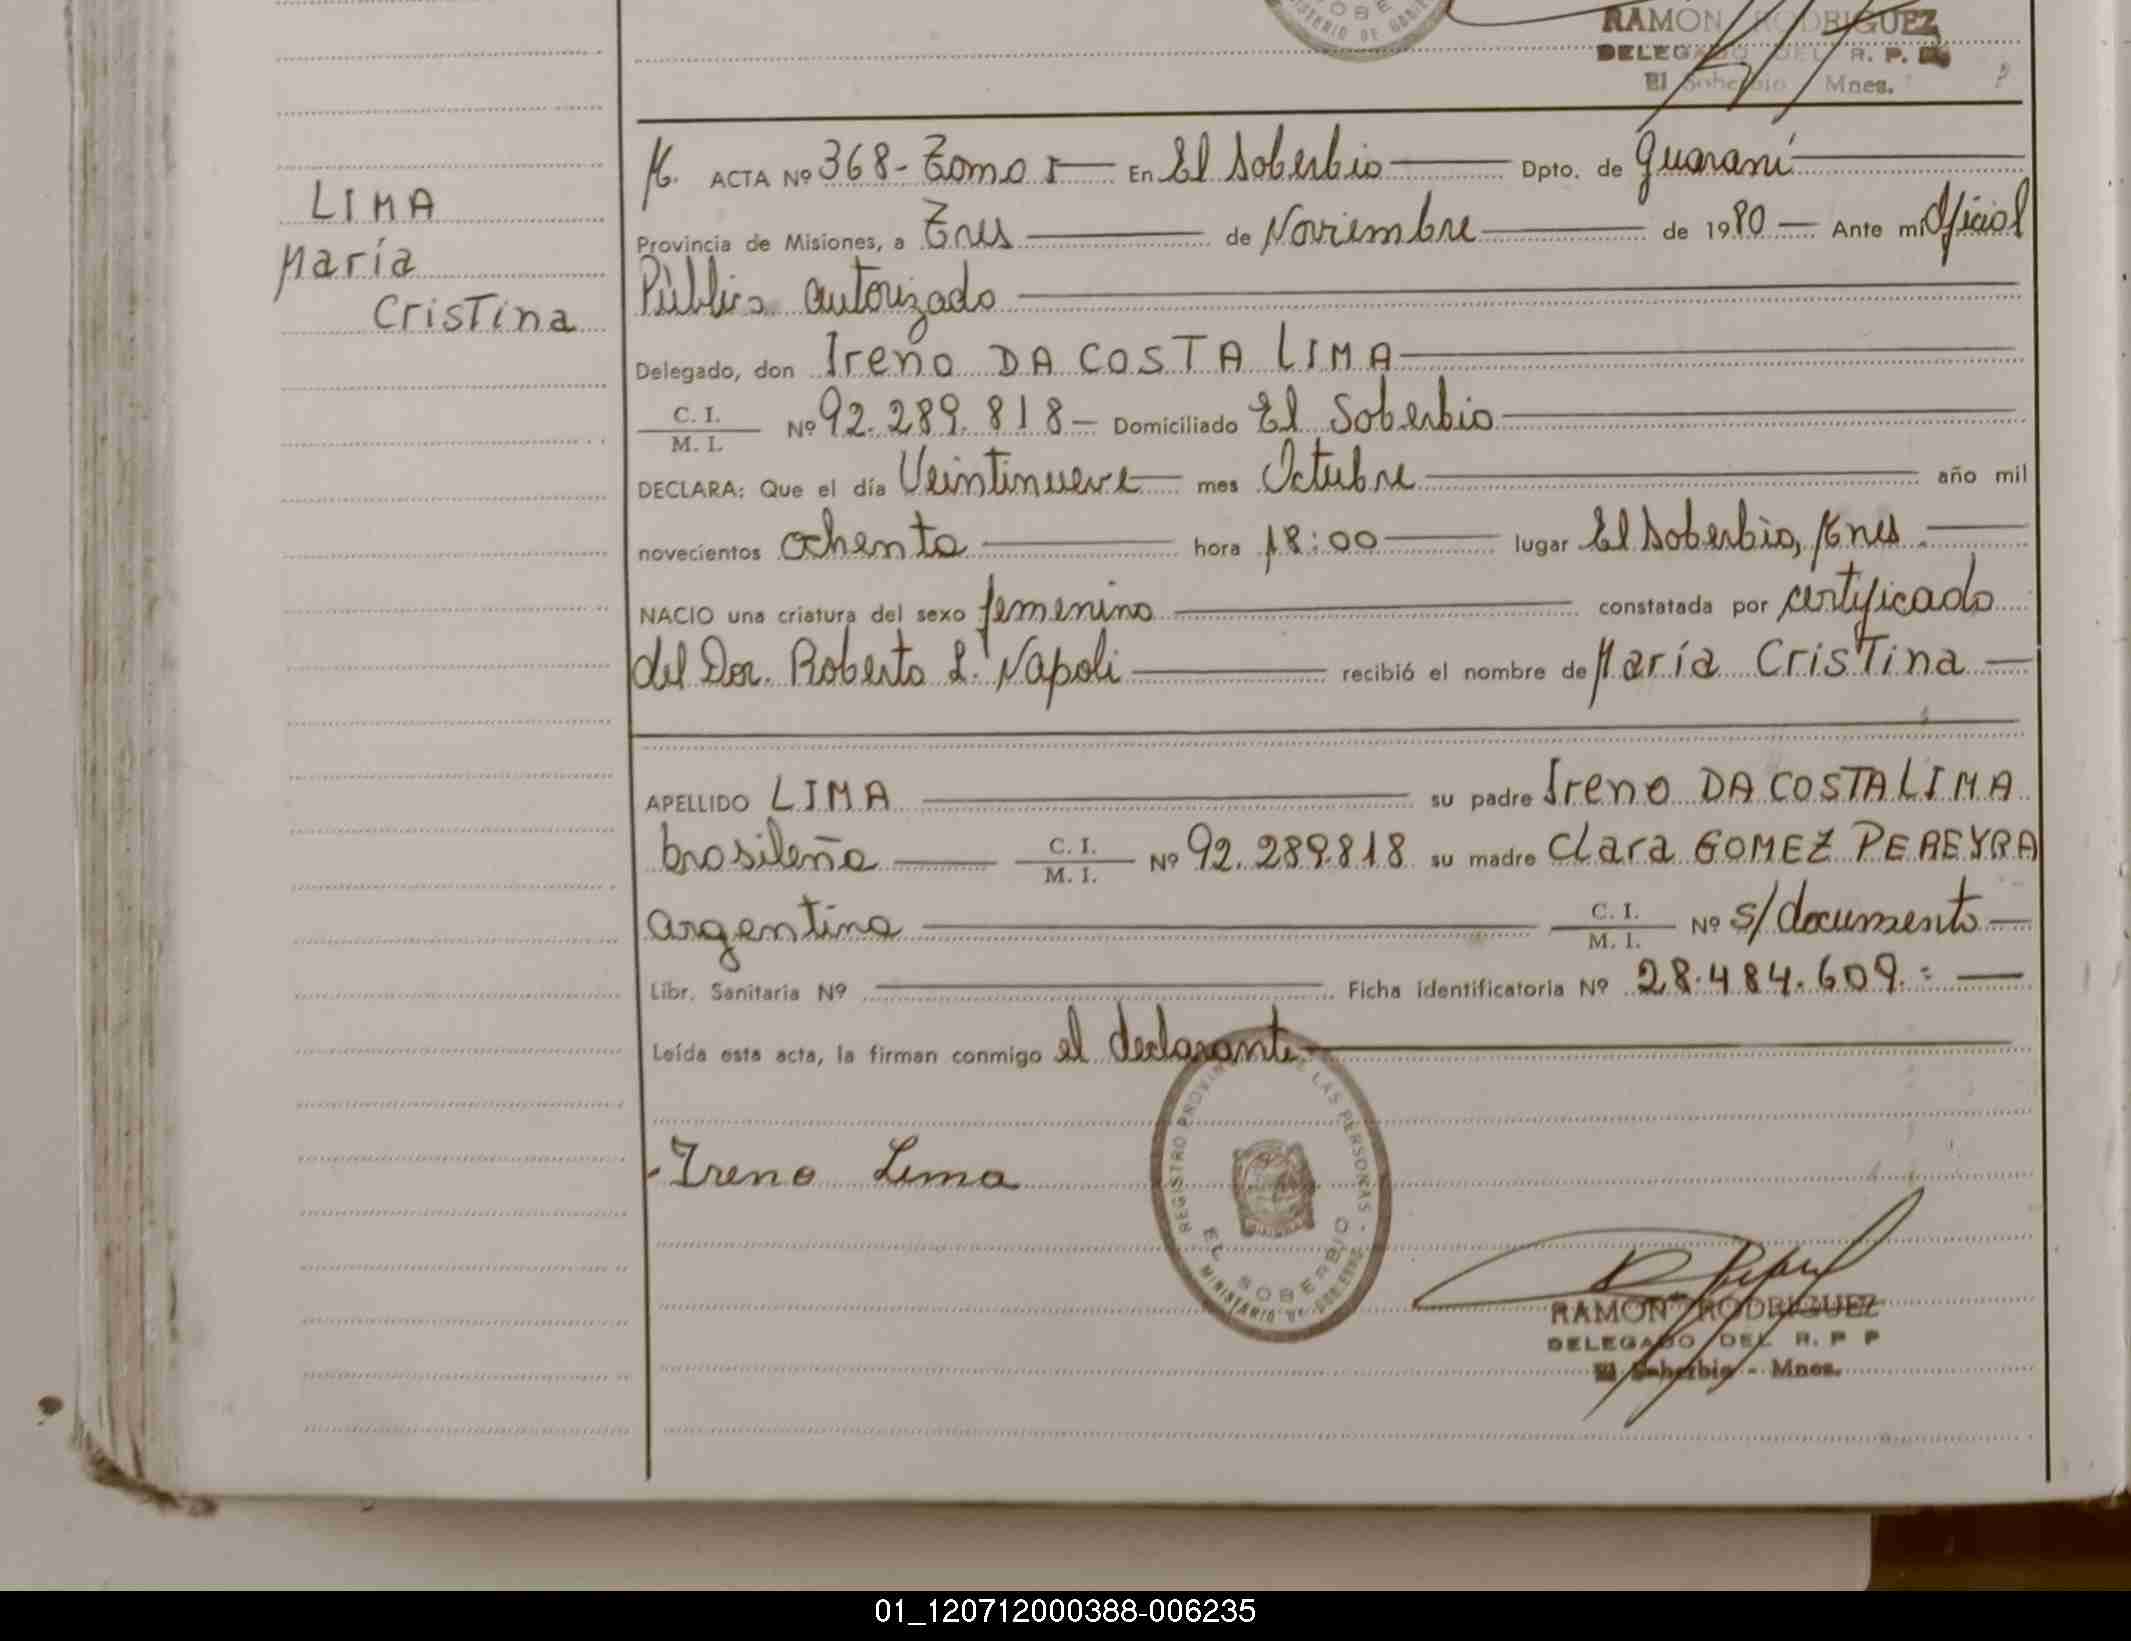 SOBE
MINISTERIO DE GOBIE
RAMON RODRIGUEZ
DELEGADO DEL R. P.
El Soberbio Mnes.
LIMA
María
Cristina
ACTA Nº 368- Tomo I En El Soberbio Dpto. de Guaraní
Provincia de Misiones, a Tres de Noviembre de 1980 Ante mi Oficial
Público autorizado
Delegado, don Ireno DA COSTA LIMA
C. I.
M. I. Nº 92.289.818 Domiciliado El Soberbio
DECLARA: Que el día Veintinueve mes Octubre año mil
novecientos ochenta hora 18:00 lugar El Soberbio, Mnes
NACIO una criatura del sexo femenino constatada por certificado
del Dor. Roberto L. Napoli recibió el nombre de María Cristina
APELLIDO LIMA su padre Ireno DA COSTA LIMA
brasileña C. I.
M. I. Nº 92.289.818 su madre Clara GOMEZ PEREYRA
argentina C. I.
M. I. Nº s/documento
Libr. Sanitaria Nº Ficha identificatoria Nº 28.484.609.=
Leída esta acta, la firman conmigo el declarante.
Ireno Lima
REGISTRO PROVIN DE LAS PERSONAS
EL SOBERBIO
MINISTERIO DE GOBIERNO
RAMON RODRIGUEZ
DELEGADO DEL R. P P
El Soberbio - Mnes.
01_120712000388-006235